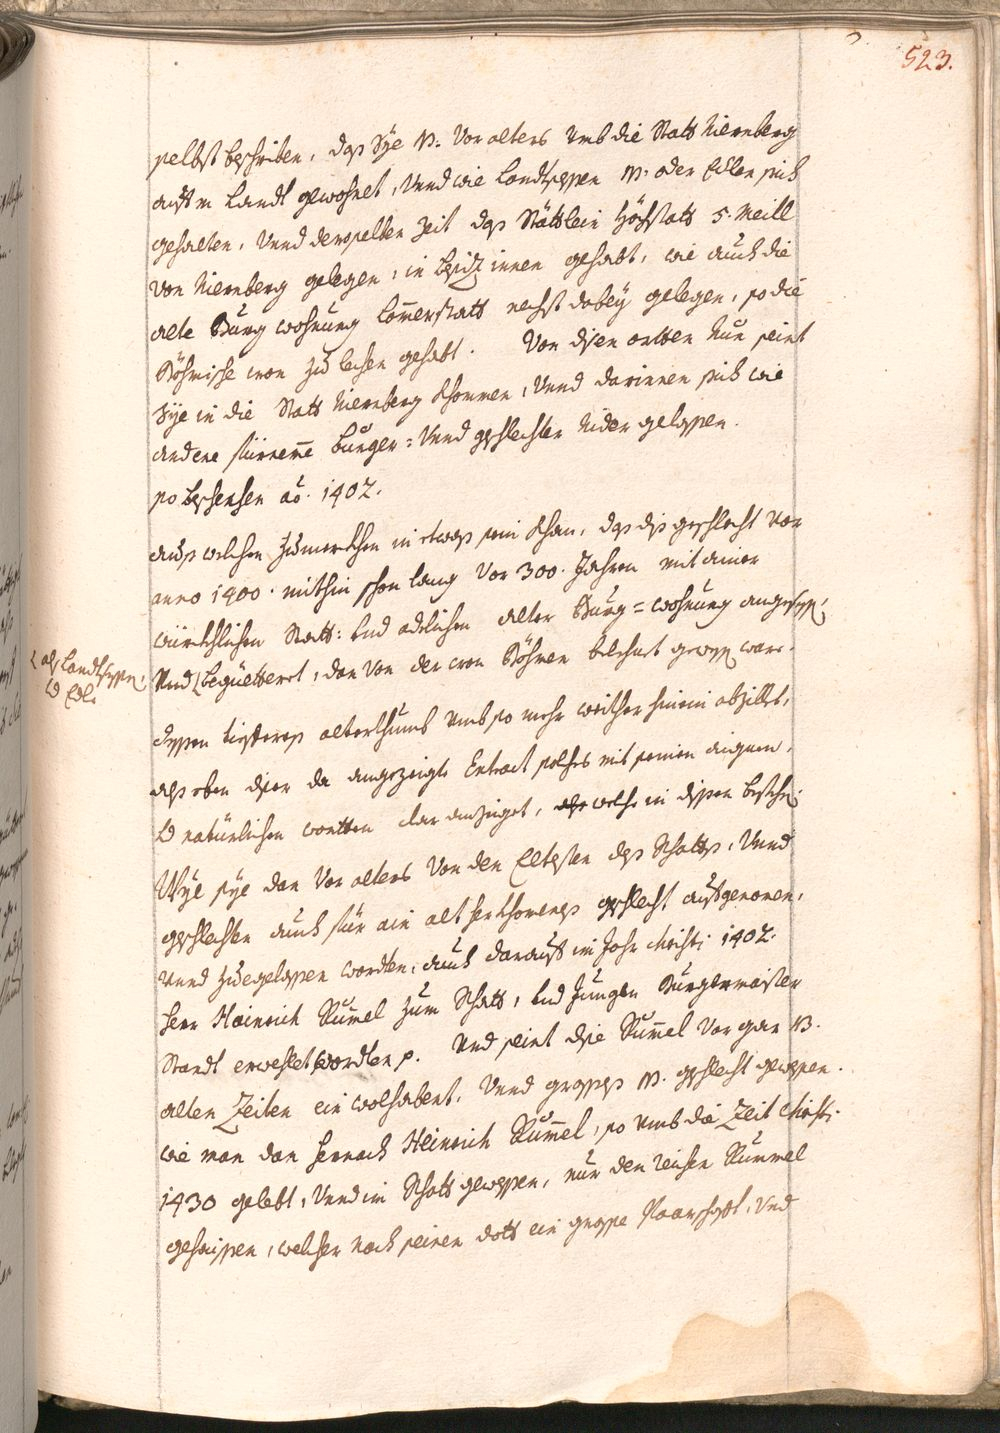 523.
selbst beschriben, das Sye N. Vor alters Umb die Statt Niernberg
aufm Landt gewohnet, Unnd wie Landtsessen N. oder Edlen sich
gehalten, Unnd derselben Zeit das Stättlein Höchstatt 5. Meill
von Niernberg gelegen, in besiz innen gehabt, wie auch die
alte Burg wohnung Lonnerstatt nechst dabey gelegen, so die
Böhmische cron zu lechen gehabt. Von disen ortten Nun seint
Sye in die Statt Niernberg khommen, Unnd darinnen sich wie
andere fürneme Burger: Unnd geschlechter Nider gelassen.
so beschechen aõ. 1402.
auss welchen zumerkhen in etwas sein khan, das dis geschlecht vor
anno 1400. mithin schon lang vor 300. Jahren mit ainer
würkhlichen Statt: und adelichen alter Burg=wohnung angesess,
Und begüettert, dan von der cron Böhmen belehnt gewest ware.
als Landtsessen,
Edle
dessen alterthumb umb so mehr weither hinein abzillet,
als oben diser da angezeigte Extract solches mit seinen aignen,
natürlichen wortten clar anzeiget, welche in disen bestehe:
Wye sye dan vor alters von den Eltesten des Rhatts, Unnd
geschlechten auch für ain alt herkhomens geschlecht aufgenomen,
unnd zuegelassen worden, auch darauf im Jahr christi 1402.
herr Heinrich Rummel zum Rhatt, und Jungen Burgermaister
Standt erwehlet worden p. Und seint dise Rummel vor gar N.
alten Zeiten ein wolhabent, Unnd grosses N. geschlecht gewesen.
wie man dan hernach Heinrich Rummel, so umb die Zeit christi
1430 gelebt, Unnd im Rhatt gewessen, nur den reichen Rummel
gehaissen, welcher nach seinen dott ein grosse Paarschafft, Und